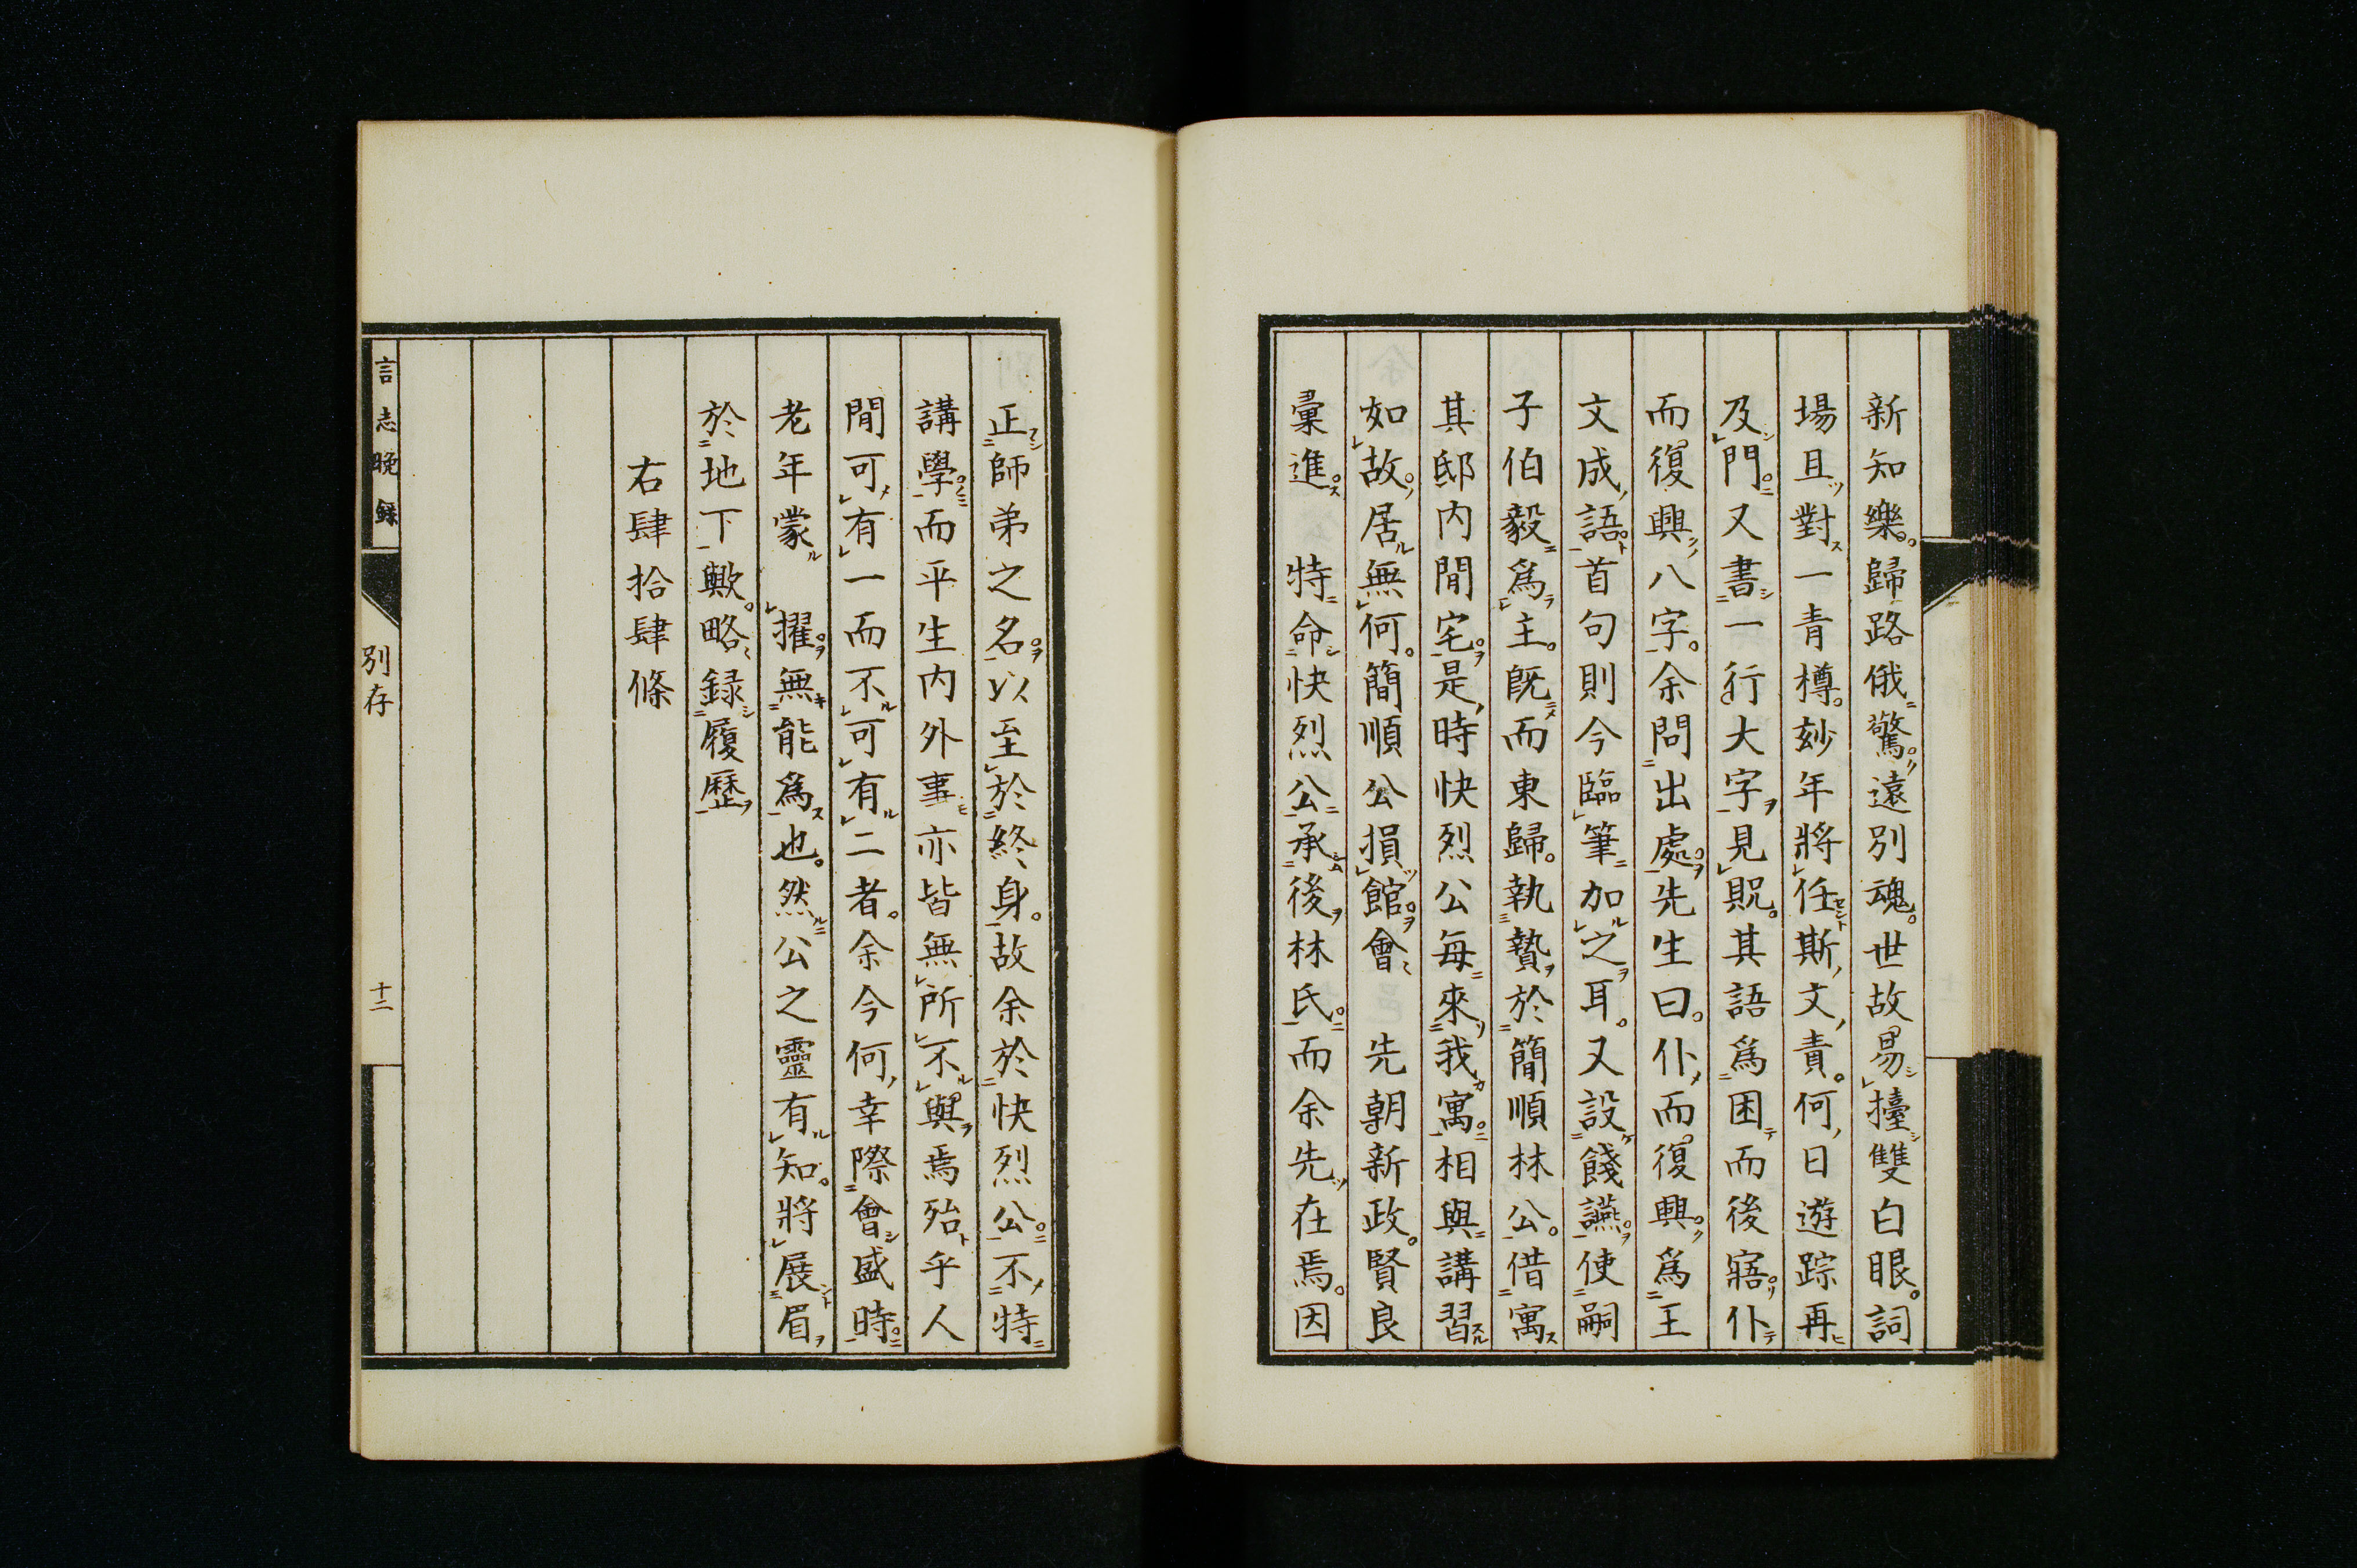 新知樂。歸路俄驚遠別魂。世故易擡雙白眼。詞
場且對一青樽。玅年將任斯文責。何日遊踪再
及門。又書一行大字見貺。其語爲困而後寤仆
而復興八字。余問出處先生曰。仆而復興。爲王
文成語首句則今臨筆加之耳。又設餞讌使嗣
子伯毅爲主。既而東歸。執贄於簡順林公。借寓
其邸内閒宅是時快烈公每來我寓相與講習
如故居無何。簡順公損館會 先朝新政。賢良
彙進 特命快烈公承後林氏而余先在焉。因
正師弟之名以至於終身。故余於快烈公不特
講學而平生内外事亦皆無所不與焉殆乎人
間可有一而不可有二者。余今何幸際會盛時
老年蒙 擢無能爲也。然公之靈有知。將展眉
於地下歟。略録履歷
右肆拾肆條
言志晚録
別存
十二